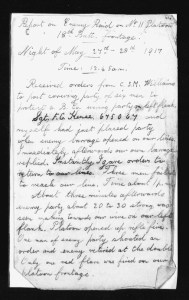 Report on Enemy Raid on No 11 Platoon
18th Batt. frontage.
Night of May 27th - 28th 1917
Time: 12.45 am.
Received orders from C.S.M.
to post covering party of six men to
protect a B.E. wiring party on left flank.
Sgt. 675067 and
myself had just placed party
when enemy barrage opened on our lines
immediately afterwards our own barrage
replied. Instantly I gave orders to
return to our lines. Three men failed
to reach our line. Time about 1
About three minutes after the
enemy party about 20 to 30 strong was
seen making towards our wire on our left
flank. Platoon opened up rifle fire.
One man of enemy party shouted an
order and enemy retired at the double
Only one red flare was fired on our
platoon frontage.